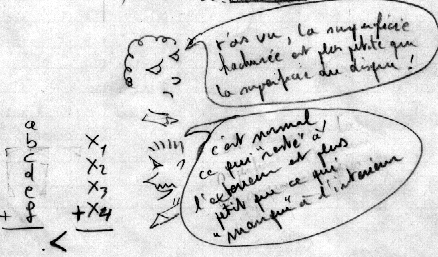 t'as vu, la superficie
hachurée est plus petite que
la superficie du disque !
c'est normal,
ce qui "reste" à
l'extérieur est plus
petit que ce qui
"manque" à l'intérieur
a
b
c
d
e
+ f
x1
x2
x3
+ x4
<